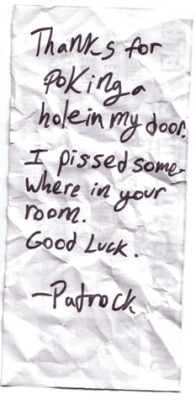 Thanks for
Poking a
hole in my door.
I pissed some-
where in your
room.
Good Luck.
-Patrock